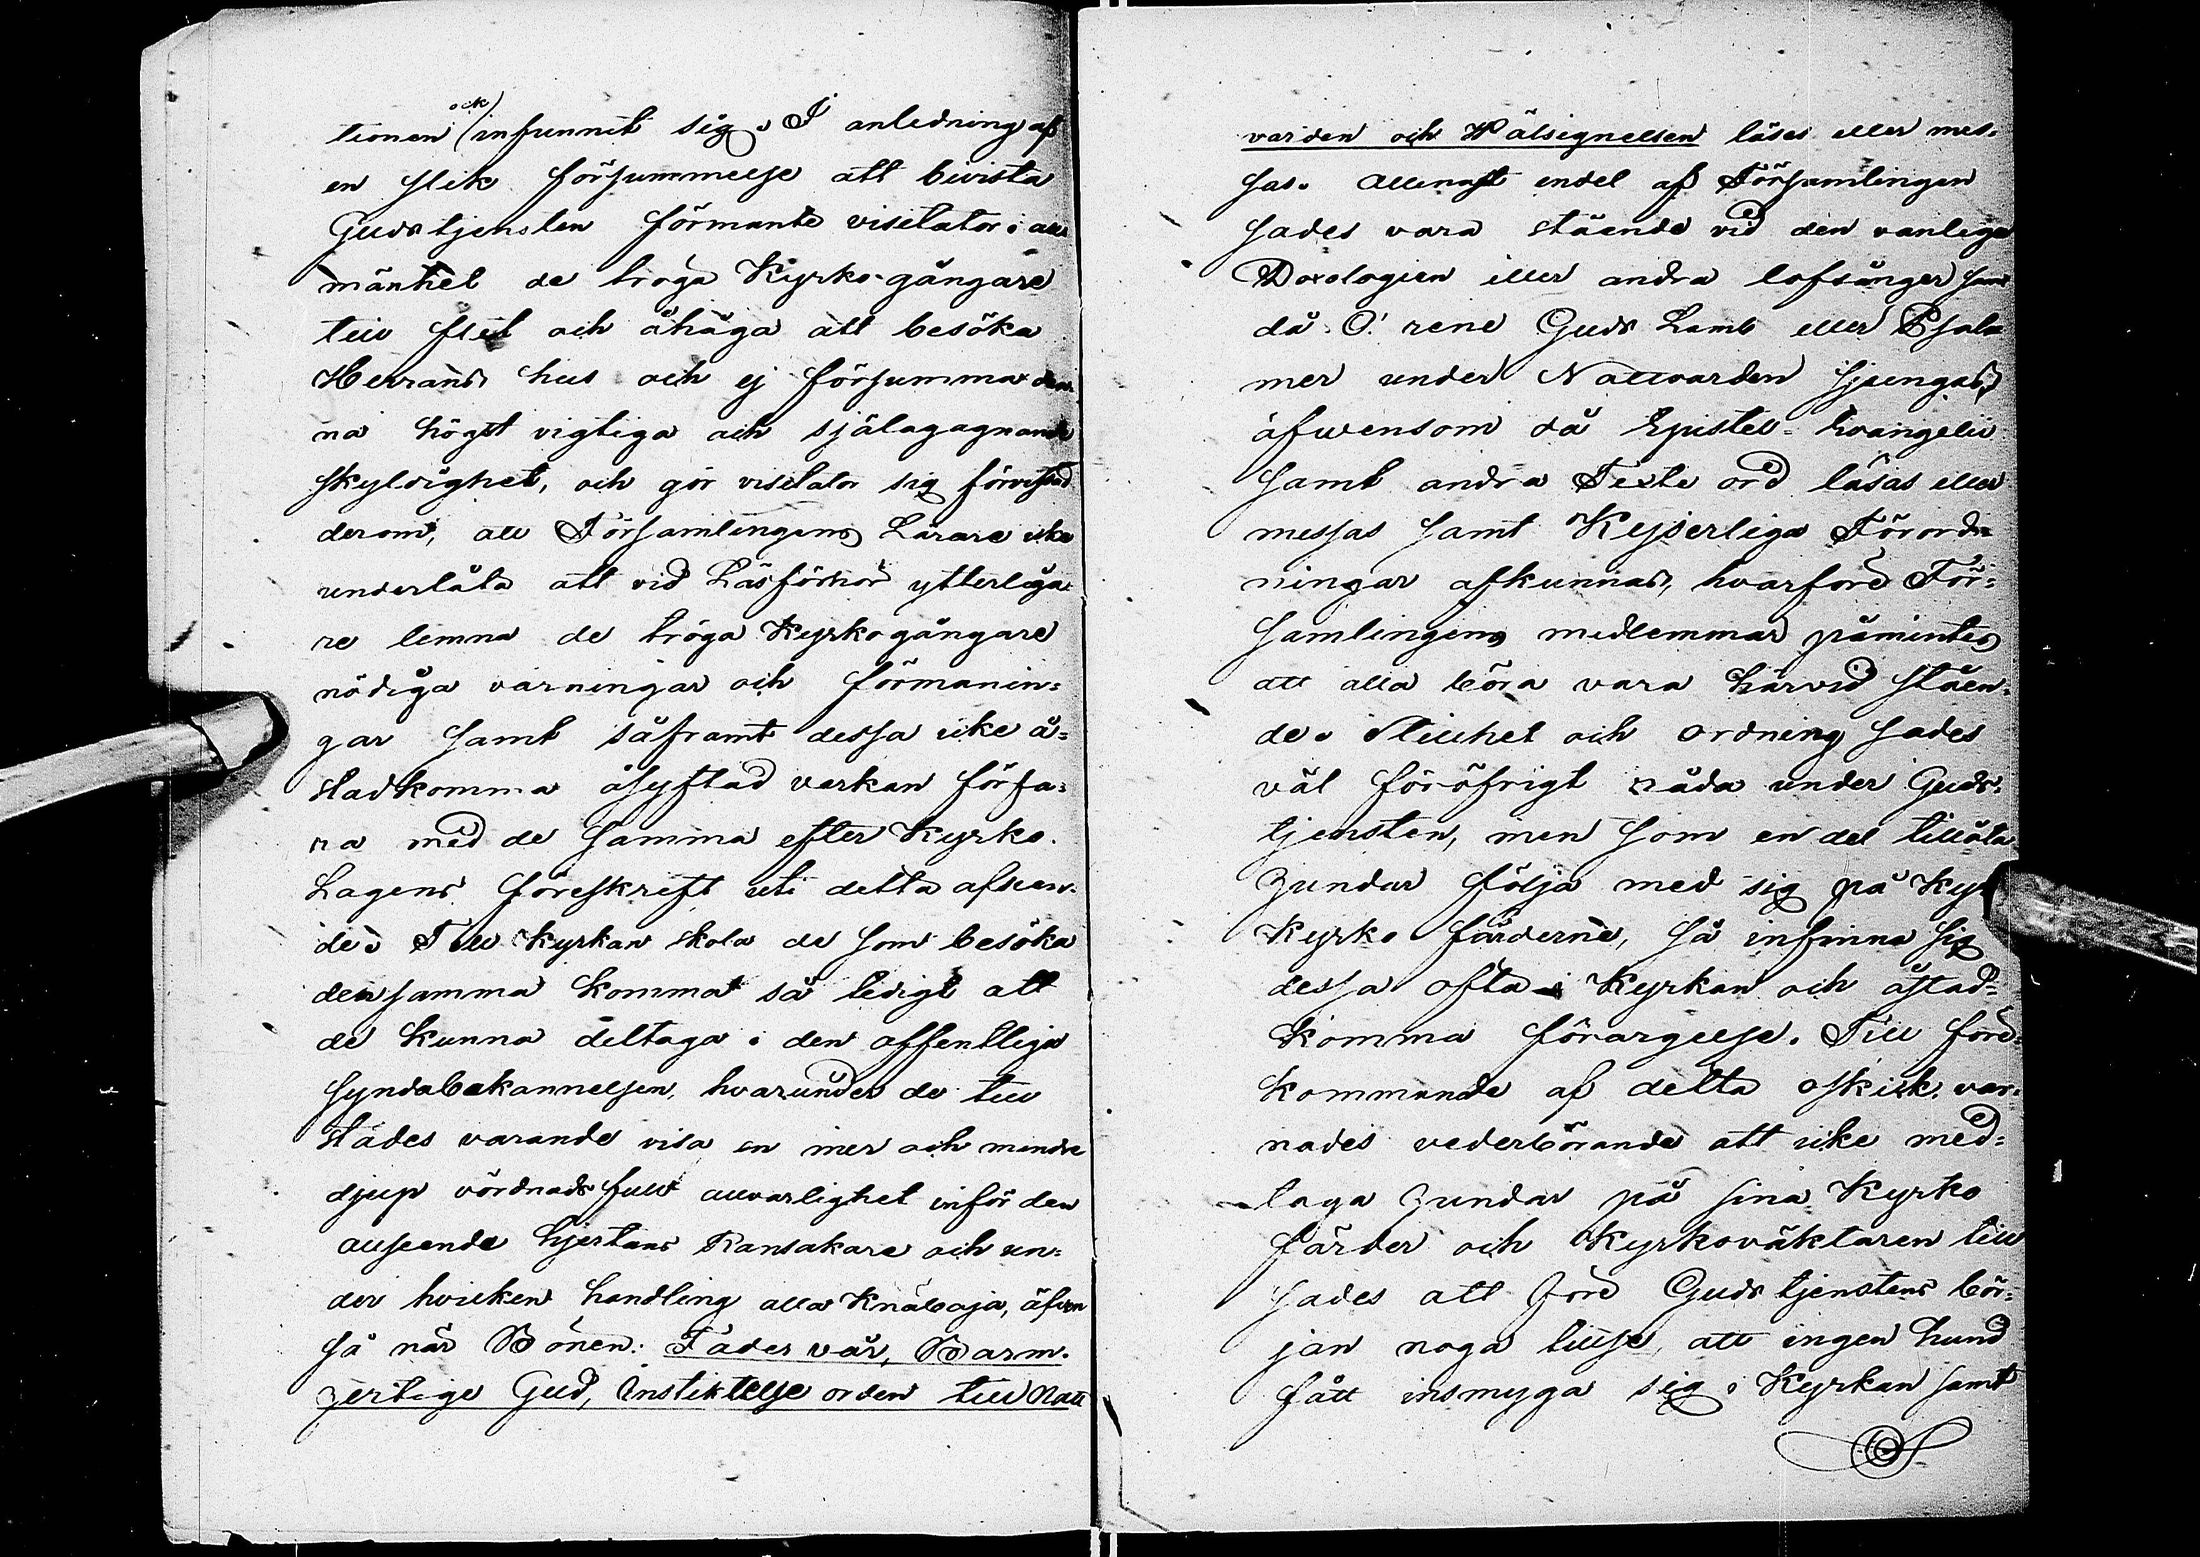 tionen ock infunnit sig. I anledning af
en slik försummelse att bivista
Gudstjensten förmante visitator i all
mänhet de tröga Kyrko-gångare
till flit och åhåga att besöka
Herrans hus och ej försumma den
na högst vigtiga och själagagnande
skyldighet, och gör visitator sig förvissad
derom, att Församlingens Lärare icke
underlåta att vid Läsförhör ytterliga
re lemna de tröga Kyrkogångare
nödiga varningar och förmanin-
gar samt såframt dessa icke å-
stadkomma åsyftad verkan förfa-
ra med de samma efter Kyrko-
Lagens föreskrift uti detta afseen-
de. Till Kyrkan skola de som besöka
densamma komma så tidigt att
de kunna deltaga i den offentliga
syndabekännelsen, hvarunder de till
städes varande visa en mer och mindre
djup vördnadsfull allvarlighet inför den
allseende hjertans Ransakare och un-
der hvilken handling alla Knäböja, äfven
så när Bönen: Fader vår, Barm-
hertige Gud, Instiktelse orden till Natt
varden och Wälsignelsen läses eller mes-
sas. Allenast endel af Församlingen
sades vara stående vid den vanliga
Doxologien eller andra lofsånger samt
då O! rene Guds Lamb eller Psal
mer under Nattvarden sjungas,
äfwensom då Epistel- Evangelii
samt andra Texte ord läsas eller
messas samt Kejserliga Förord-
ningar afkunnas, hvarföre För-
samlingens medlemmar påmintes
att alla böra vara härvid ståen-
de. Stillhet och ordning sades
väl föröfrigt råda under Guds-
tjensten, men som en del tillåta
hundar följa med sig på Kyr
Kyrko färderne, så infinna sig
dessa ofta i Kyrkan och åstad-
komma förargelse. Till före-
kommande af detta oskick, var-
nades vederbörande att icke med-
taga hundar på sina Kyrko
färder och Kyrkoväktaren till
sades att före Guds tjenstens bör-
jan noga tillse, att ingen hund
fått insmyga sig i Kyrkan samt